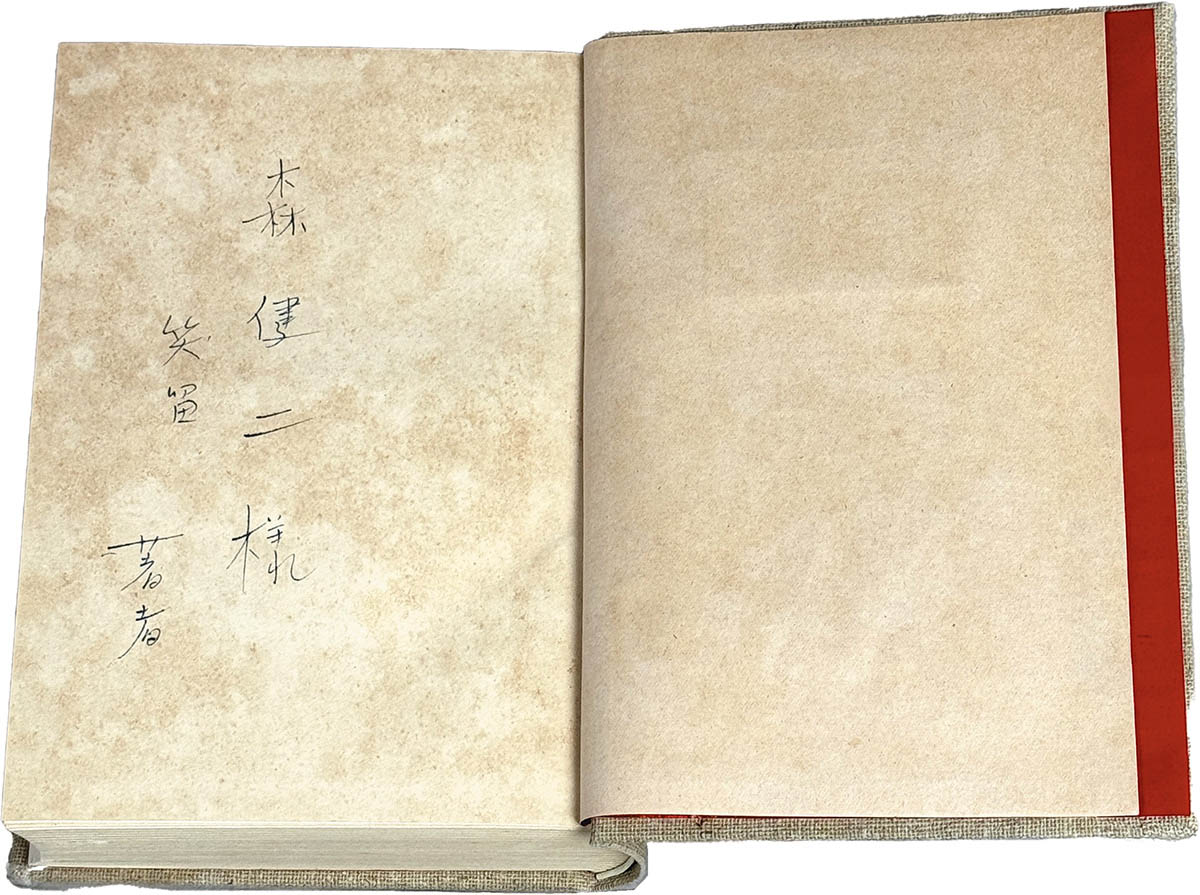 森健二様
笑留
著者